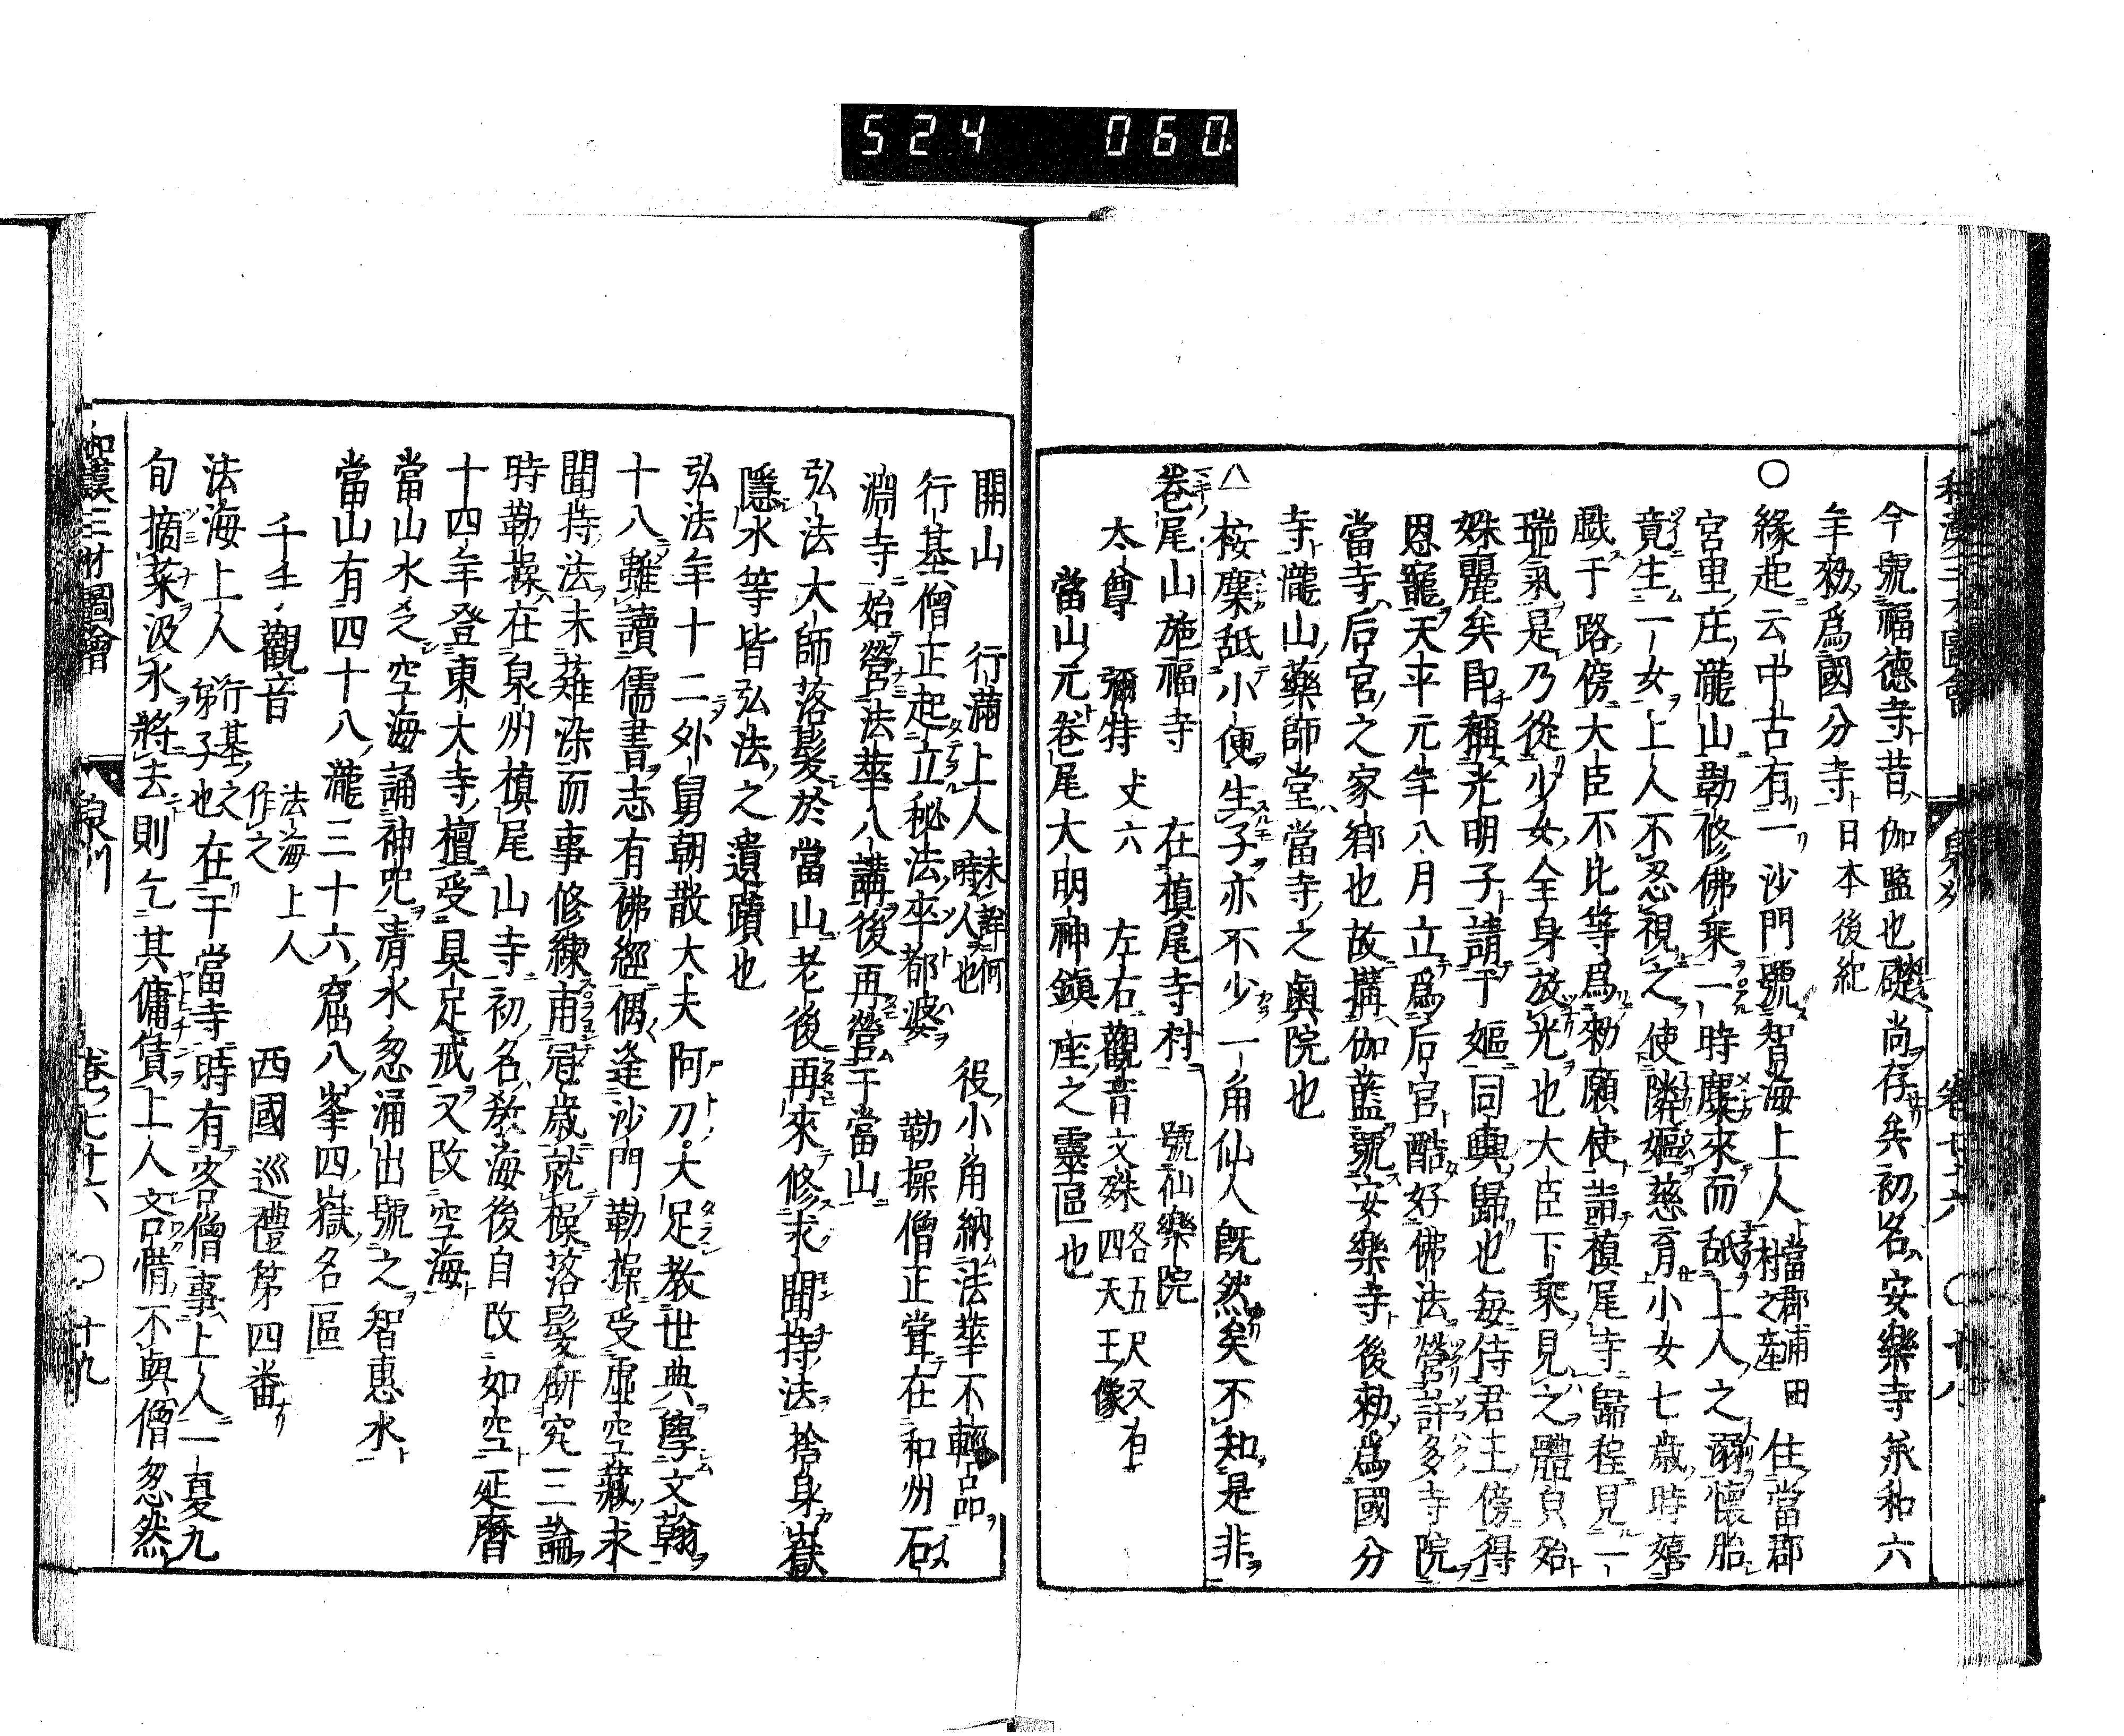 524 060
今號福德寺昔伽藍也礎尚存矣初名安樂寺承和六
年勅爲國分寺 日本後紀
○緣起云中古有一沙門號智海上人 當郡浦田村之產 住當郡
宮里庄瀧山勤修佛乘一時麋來而舐上人之溺懷胎
竟生一女上人不忍視之使隣嫗慈育小女七歲時嬉
戲于路傍大臣不比等爲勅願使詣槙尾寺歸程見一
瑞氣是乃從少女全身放光也大臣下乘見之體貌殆
姝麗矣即稱光明子請于嫗同輿歸也每侍君王傍得
恩寵天平元年八月立爲后宮酷好佛法營許多寺院
當寺后宮之家鄕也故搆伽藍號安樂寺後勅爲國分
寺瀧山藥師堂當寺之奧院也
△桉麋舐小便生子亦不少一角仙人既然矣不知是非
卷尾山施福寺 在槙尾寺村 號仙樂院
本尊 彌特 丈六 左右觀音文殊 各五尺又有四天王像
當山元卷尾大明神鎭座之靈區也
開山 行滿上人 未詳何時人也 役小角納法華不輕品
行基僧正起立秘法卒都婆 勤操僧正嘗在和州石
淵寺始營法華八講後再營于當山
弘法大師落髮於當山老後再來修求聞持法捨身嶽
隱水等皆弘法之遺蹟也
弘法年十二外舅朝散大夫阿刀大足敎世典學文翰
十八雖讀儒書志有佛經偶逢沙門勤操受虛空藏求
聞持法未薙染而事修練甫冠歲就操落髮硏究三論
時勤操在泉州槙尾山寺初名敎海後自改如空延曆
十四年登東大寺壇受具足戒又改空海
當山水乏空海誦神咒淸水忽涌出號之智惠水
當山有四十八瀧三十六窟八峯四嶽名區
千手觀音 法海上人作之 西國巡禮第四番
法海上人 行基之弟子也 在于當寺時有客僧事上人一夏九
旬摘菜汲水將去則乞其傭賃上人吝惜不與僧忽然
和漢三才圖會 泉州 卷七十六 ○十九